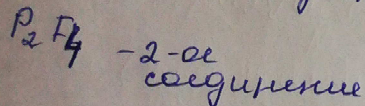 P₂F₄ – 2-ое
соединение